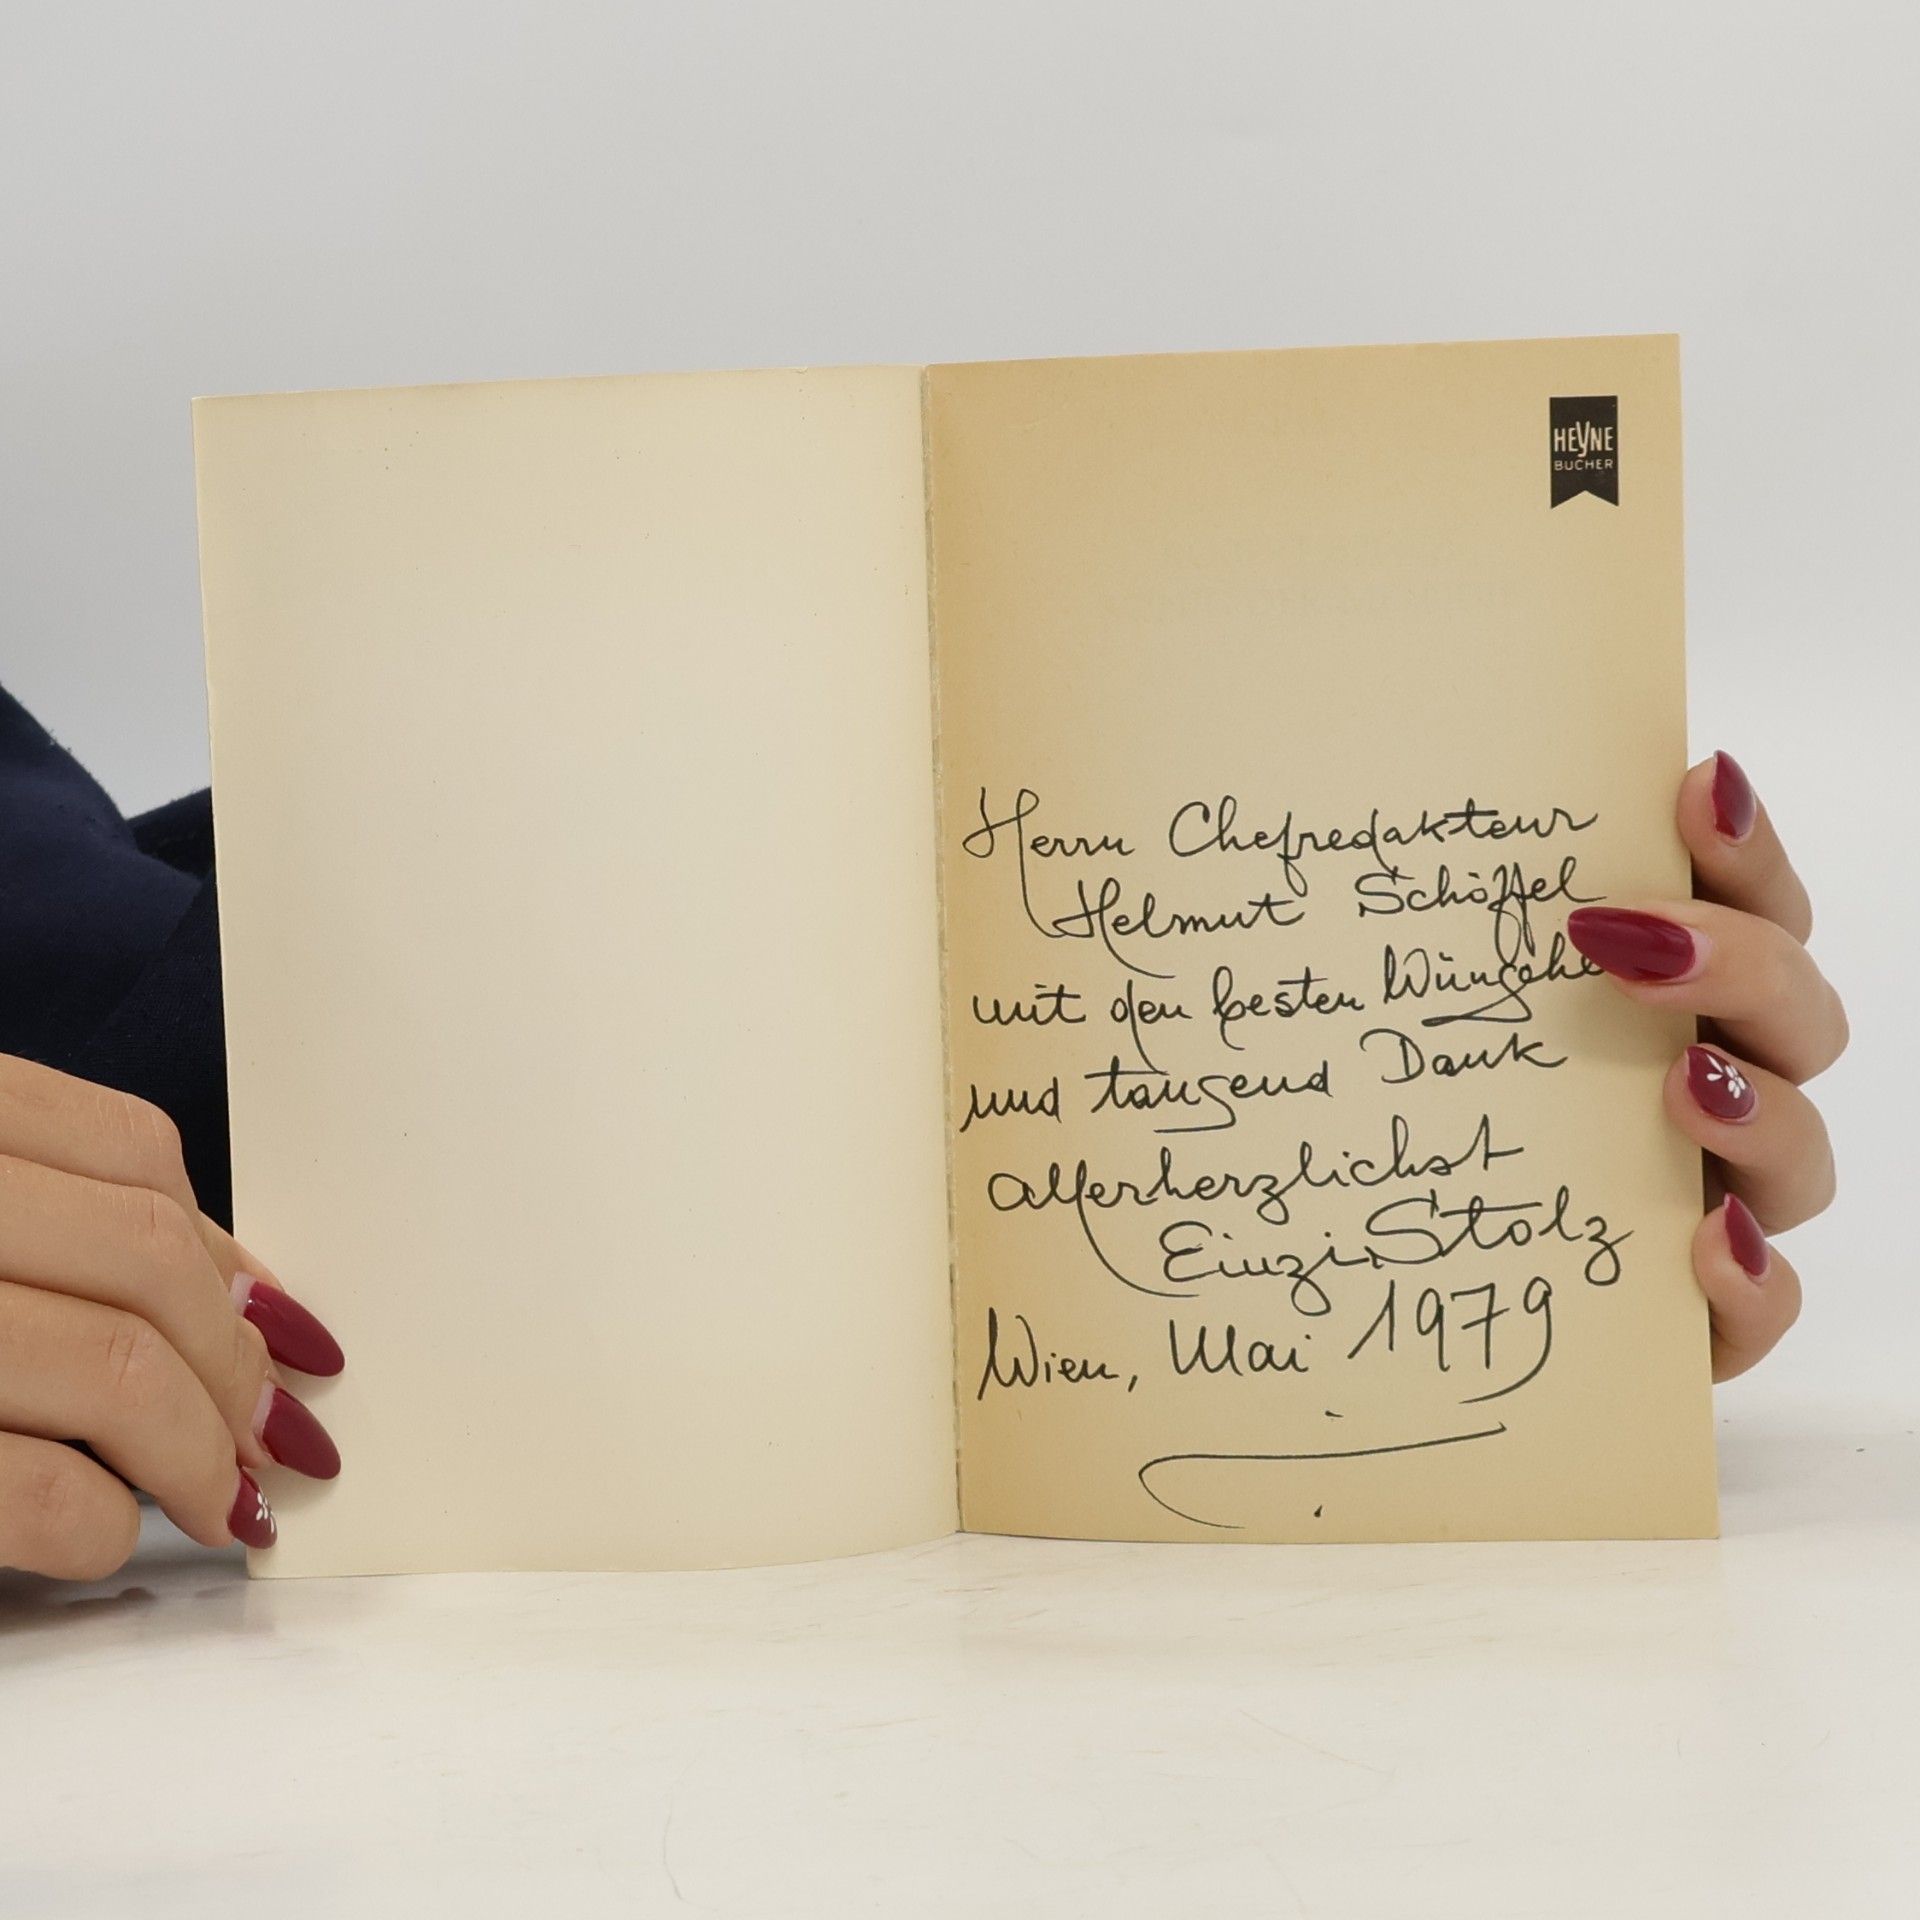 HEYNE
BÜCHER
Herrn Chefredakteur
Helmut Schöffel
mit den besten Wünschen
und tausend Dank
allerherzlichst
Einzi Stolz
Wien, Mai 1979